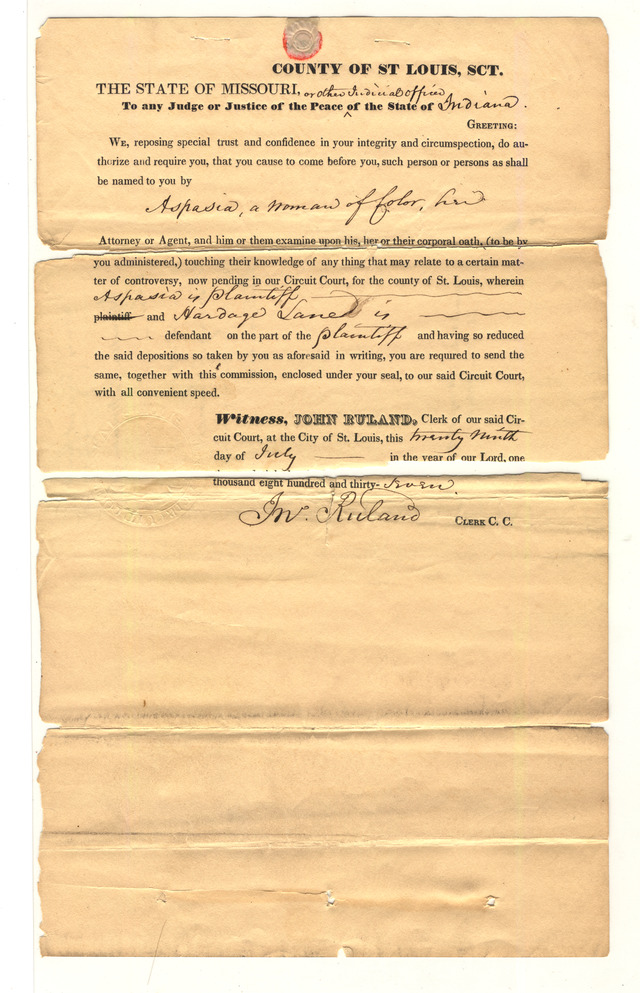 COUNTY OF ST LOUIS, SCT.
THE STATE OF MISSOURI, or other Judicial officer
To any Judge or Justice of the Peace ^ of the State of Indiana.
GREETING:
WE, reposing special trust and confidence in your integrity and circumspection, do au-
thorize and require you, that you cause to come before you, such person or persons as shall
be named to you by
Aspasia, a woman of Color, her
Attorney or Agent, and him or them examine upon his, her or their corporal oath, (to be by
you administered,) touching their knowledge of any thing that may relate to a certain mat-
ter of controversy, now pending in our Circuit Court, for the county of St. Louis, wherein
Aspasia is plaintiff
plaintiff and Hardage Lane is
defendant on the part of the plaintiff and having so reduced
the said depositions so taken by you as aforesaid in writing, you are requred to send the
same, together with this commission, enclosed under your seal, to our said Circuit Court,
with all convenient speed.
Witness, JOHN RULAND, Clerk of our said Cir-
cuit Court, at the City of St. Louis, this twenty ninth
day of July in the year of our Lord, one
thousand eight hundred and thirty-seven.
Jno. Ruland CLERK C. C.